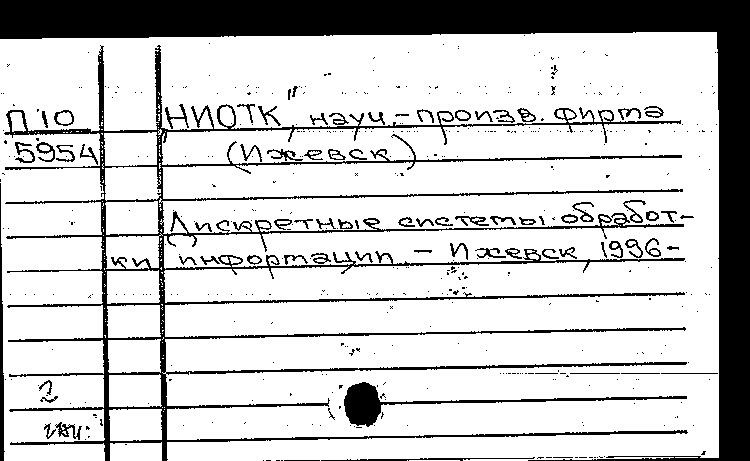 П 10 "НИОТК", науч.-произв. фирма
5954 (Ижевск)
Дискретные системы обработ-
ки информации. - Ижевск, 1996-
2